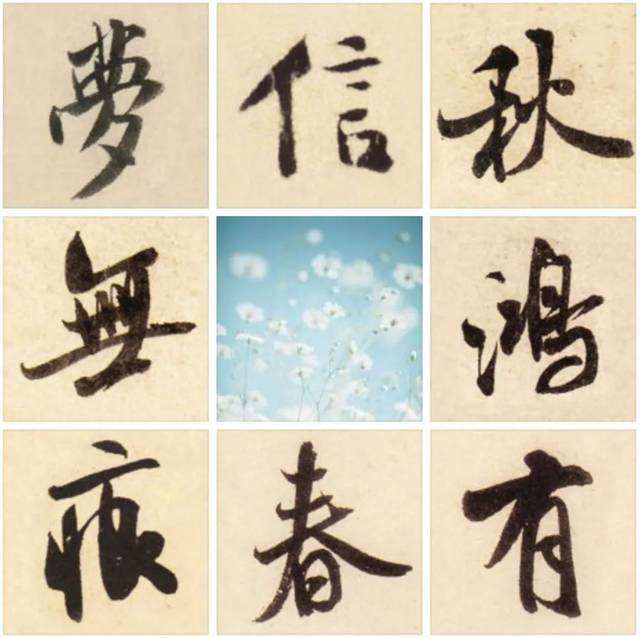 秋鴻有
信春
夢無痕